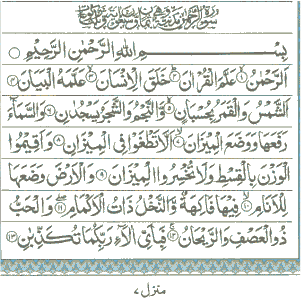 سورة الرحمن مدنية وهي ثمان وسبعون آية
بِسْمِ اللهِ الرَّحْمٰنِ الرَّحِيْمِ
اَلرَّحْمٰنُ ۙ﴿۱﴾ عَلَّمَ الْقُرْاٰنَ ؕ﴿۲﴾ خَلَقَ الْاِنْسَانَ ۙ﴿۳﴾ عَلَّمَهُ الْبَيَانَ ﴿۴﴾
اَلشَّمْسُ وَالْقَمَرُ بِحُسْبَانٍ ۪﴿۵﴾ وَّالنَّجْمُ وَالشَّجَرُ يَسْجُدٰنِ ﴿۶﴾ وَالسَّمَآءَ
رَفَعَهَا وَوَضَعَ الْمِيْزَانَ ۙ﴿۷﴾ اَلَّا تَطْغَوْا فِى الْمِيْزَانِ ﴿۸﴾ وَاَقِيْمُوا
الْوَزْنَ بِالْقِسْطِ وَلَا تُخْسِرُوا الْمِيْزَانَ ﴿۹﴾ وَالْاَرْضَ وَضَعَهَا
لِلْاَنَامِ ۙ﴿۱۰﴾ فِيْهَا فَاكِهَةٌ وَّالنَّخْلُ ذَاتُ الْاَكْمَامِ ۖ﴿۱۱﴾ وَالْحَبُّ
ذُو الْعَصْفِ وَالرَّيْحَانُ ۚ﴿۱۲﴾ فَبِاَىِّ اٰلَآءِ رَبِّكُمَا تُكَذِّبٰنِ ﴿۱۳﴾
منزل ۷